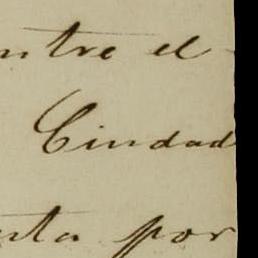 ntre el
Ciudad
nta por